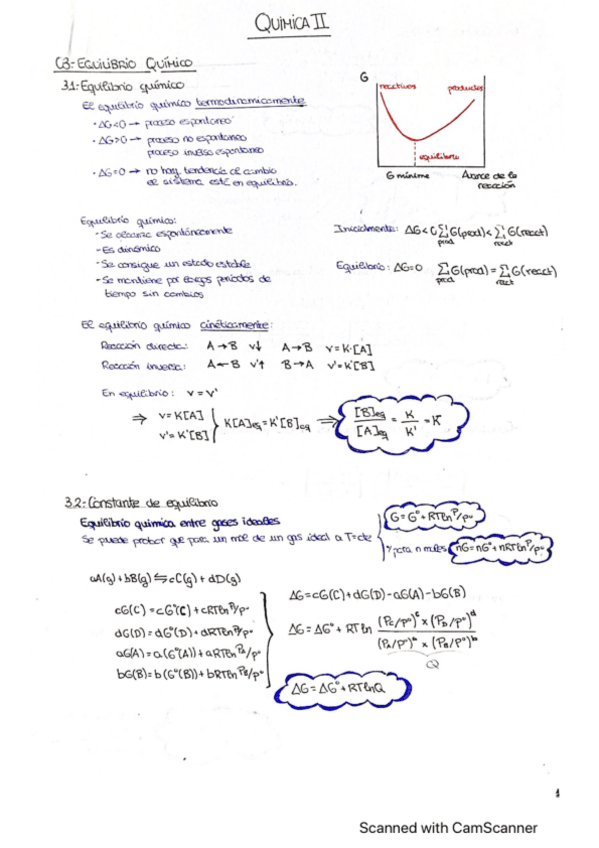 QUÍMICA II
C3-EQUILIBRIO QUÍMICO
3.1-Equilibrio químico
El equilibrio químico termodinamicamente
· ΔG<0 → proceso espontaneo
· ΔG>0 → proceso no espontaneo
proceso inverso espontaneo
· ΔG=0 → no hay tendencia al cambio
el sistema está en equilibrio.
G
reactivos
productos
equilibrio
G mínima
Avance de la
reacción
Equilibrio químico:
-Se alcanza espontáneamente
-Es dinámico
-Se consigue un estado estable
-Se mantiene por largos periodos de
tiempo sin cambios
Inicialmente: ΔG<0 Σ G(prod) < Σ G(react)
prod react
Equilibrio: ΔG=0 Σ G(prod) = Σ G(react)
prod react
El equilibrio químico cinéticamente:
Reacción directa: A→B v↓ A→B v=K·[A]
Reacción inversa: A←B v'↑ B→A v'=K'[B]
En equilibrio: v=v'
⇒ v=K[A]
v'=K'[B]
K[A]eq=K'[B]eq ⇒ [B]eq/[A]eq = K/K' = K
3.2-Constante de equilibrio
Equilibrio química entre gases ideales
Se puede probar que para un mol de un gas ideal a T=cte
G=G°+RTln P/P°
y para n moles nG=nG°+nRTln P/P°
aA(g)+bB(g)⇆cC(g)+dD(g)
cG(C)=cG°(C)+cRTln Pc/P°
dG(D)=dG°(D)+dRTln PD/P°
aG(A)=a(G°(A))+aRTln PA/P°
bG(B)=b(G°(B))+bRTln PB/P°
ΔG=cG(C)+dG(D)-aG(A)-bG(B)
ΔG=ΔG°+RTln (Pc/P°)^c x (PD/P°)^d / (PA/P°)^a x (PB/P°)^b
Q
ΔG=ΔG°+RTlnQ
1
Scanned with CamScanner